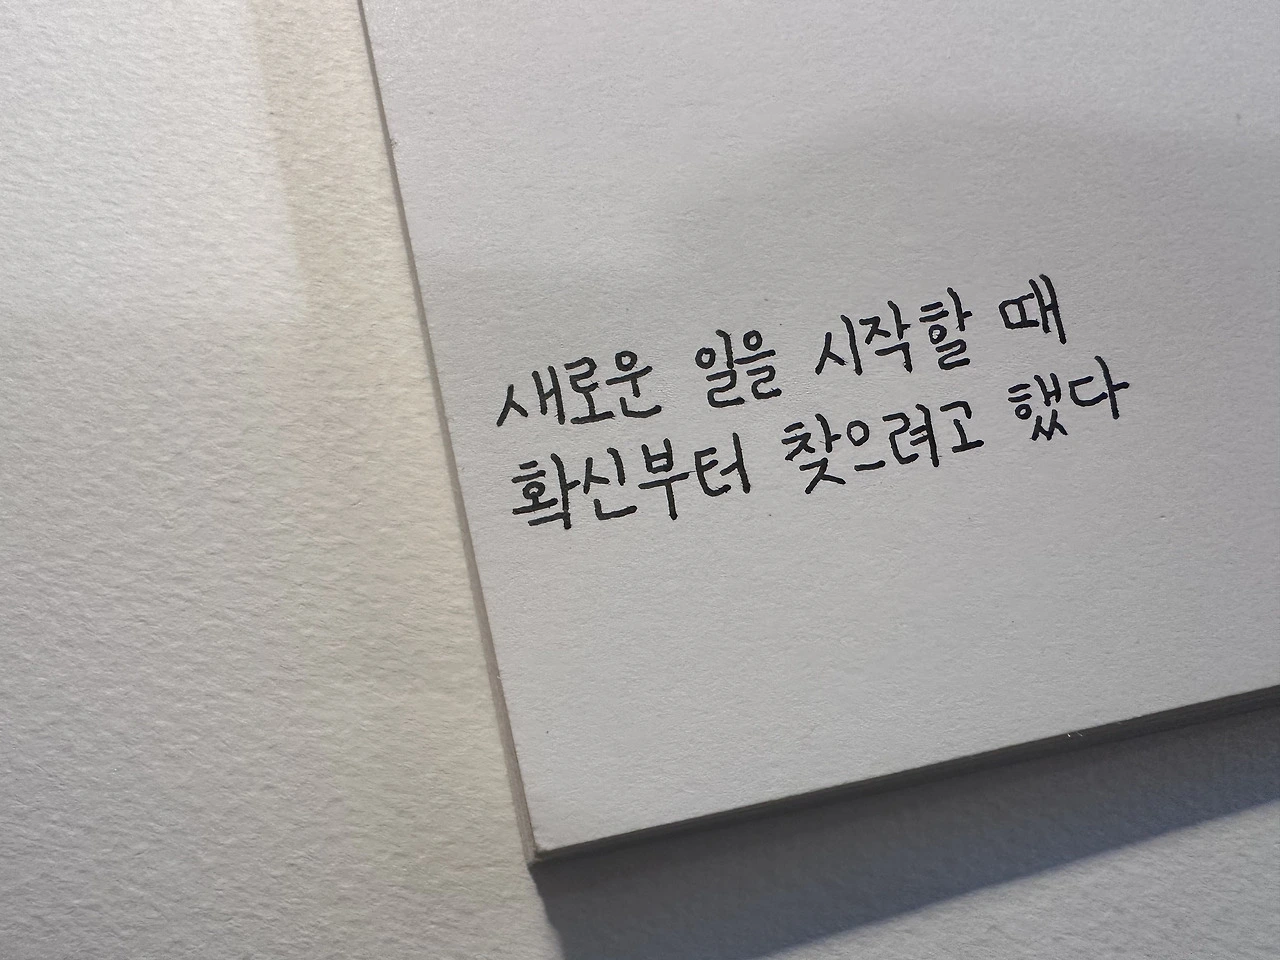 새로운 일을 시작할 때
확신부터 찾으려고 했다